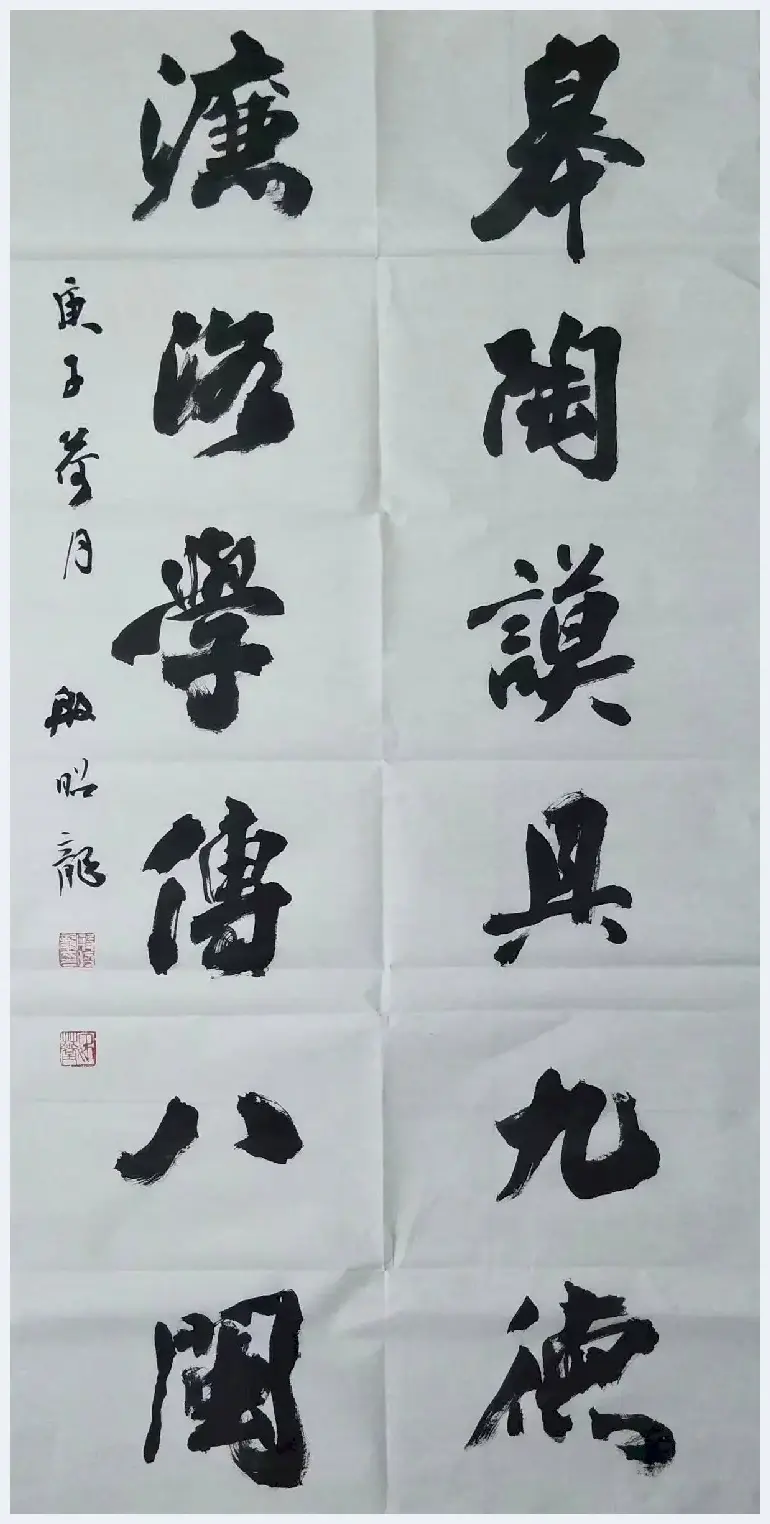 皋陶謨具九德
濂洛學傳八閩
庚子荷月 殷昭龍